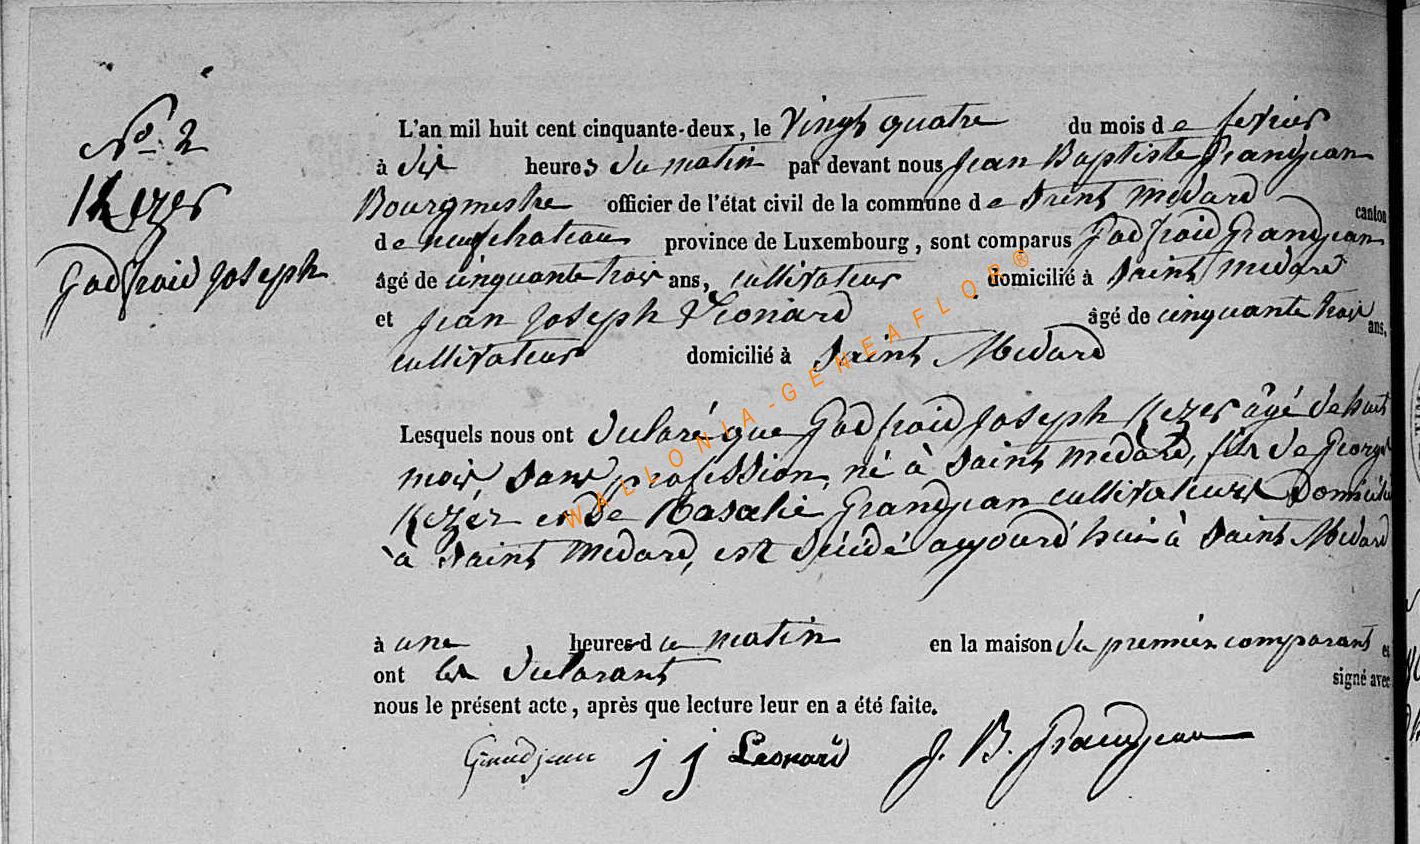 No 2
Kezer
Godfroid Joseph
L'an mil huit cent cinquante-deux, le Vingt quatre du mois de fevrier
à dix heures du matin par devant nous Jean Baptiste Grandjean
Bourgmestre officier de l'état civil de la commune de Saint Medard canton
de neufchateau province de Luxembourg, sont comparus Godfroid Grandjean
âgé de cinquante trois ans, cultivateur domicilié à Saint Medard
et Jean Joseph Léonard âgé de cinquante trois ans,
cultivateur domicilié à Saint Medard
Lesquels nous ont declaré que Godfroid Joseph Kezer âgé de huit
mois sans profession, né à Saint Medard, fils de George
Kezer et de Rosalie Grandjean cultivateurs Domiciliés
à Saint Medard, est décédé aujourd'hui à Saint Medard
à une heures du matin en la maison du premier comparant et
ont les declarants signé avec
nous le présent acte, après que lecture leur en a été faite.
Grandjean j j Leonard J. B. Grandjean
WALLONIA-GENEAFLOR®